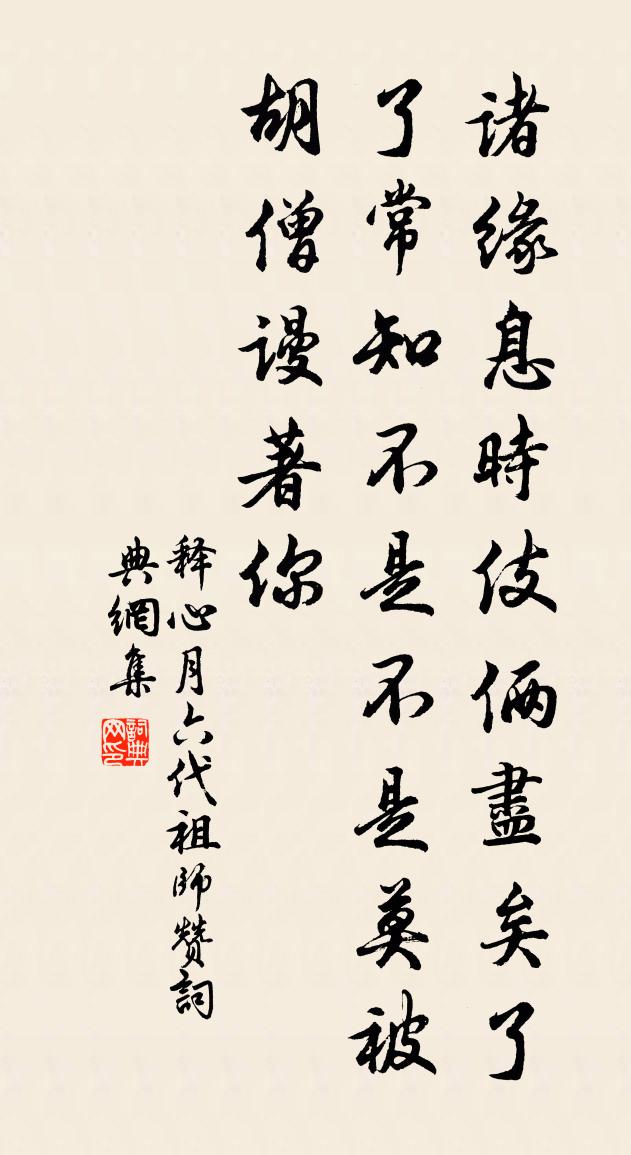 诸缘息時伎倆盡矣了
了常知不是不是莫被
胡僧谩著你
释心月六代祖師赞詞
典網集
詞典网印